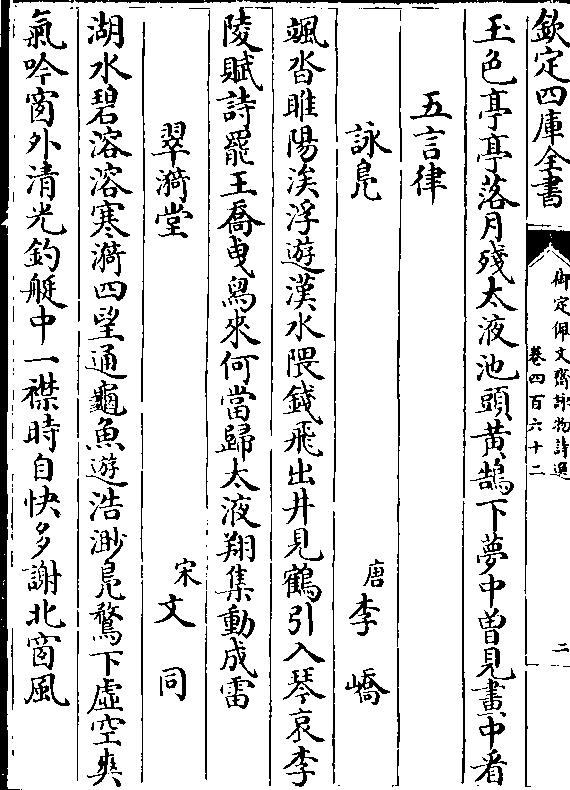 欽定四庫全書
御定佩文齋詠物詩選
卷四百六十二
二
玉色亭亭落月殘太液池頭黃鵠下夢中曽見畫中看
五言律
詠鳬
唐李嶠
颯沓睢陽涘浮遊漢水隈錢飛出井見鶴引入琴哀李
陵賦詩罷王喬曳舄來何當歸太液翔集動成雷
翠漪堂
宋文同
湖水碧溶溶寒漪四望通龜魚遊浩渺鳬鶩下虛空爽
氣吟窗外清光釣艇中一襟時自快多謝北窗風